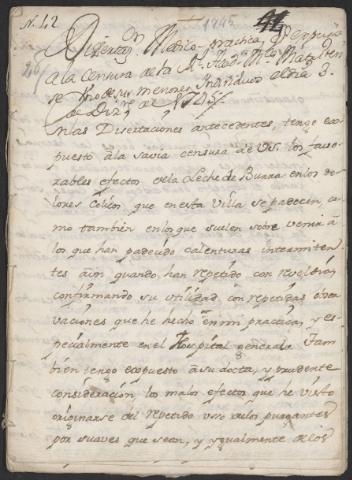 N. 42
1745
44
Disertaz.on Medico practica, q
a la Censura de la Rl. Acad.a Ma
se Yno de sus menores Individuos el dia 3.
de Diz.re de 1745
En las Disertaciones antecedentes, tengo ex-
puesto à la savia censura de Vss. los favo-
rables efectos de la Leche de Burra en los do-
lores Colicos que en esta Villa se padecen, co-
mo tambien en los que suelen sobre venir à
los que han padecido calenturas intermiten-
tes aun quando han repetido con reveldia;
confirmando su utilidad con repetidas obser-
vaciones que he hecho en mi practica, y es-
pecialmente en el Hospital general. Tam-
bien tengo expuesto a su docta, y prudente
consideracion, los malos efectos que he visto
originarse del repetido uso de los purgantes
por suaves que sean, y ygualmente de los